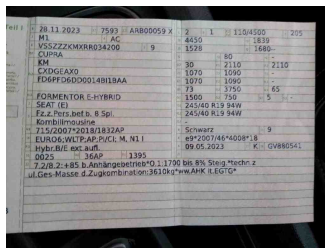 Teil I
28.11.2023 7593 ARB00059 X
M1 AC
VSSZZZKMXRR034200 9
CUPRA
KM
CXDGEAX0
FD6PFD6DD0014BI1BAA
FORMENTOR E-HYBRID
SEAT (E)
Fz.z.Pers.bef.b. 8 Spl.
Kombilimousine
715/2007*2018/1832AP
EURO6;WLTP;AP;PI/CI; M, N1 I
Hybr.B/E ext.aufl.
0025 36AP 1395
2 1 110/4500 205
4450 1839
1528 1680-
- 80 -
30 2110 - 2110
1070 1090 -
1070 1090 -
73 3750 - 65
1500 750 5 -
245/40 R19 94W
245/40 R19 94W
-
Schwarz 9
e9*2007/46*4008*18
09.05.2023 K GV880541
7.2/8.2:+85 b.Anhängebetrieb*O.1:1700 bis 8% Steig.*techn.z
ul.Ges-Masse d.Zugkombination:3610kg*ww.AHK lt.EGTG*